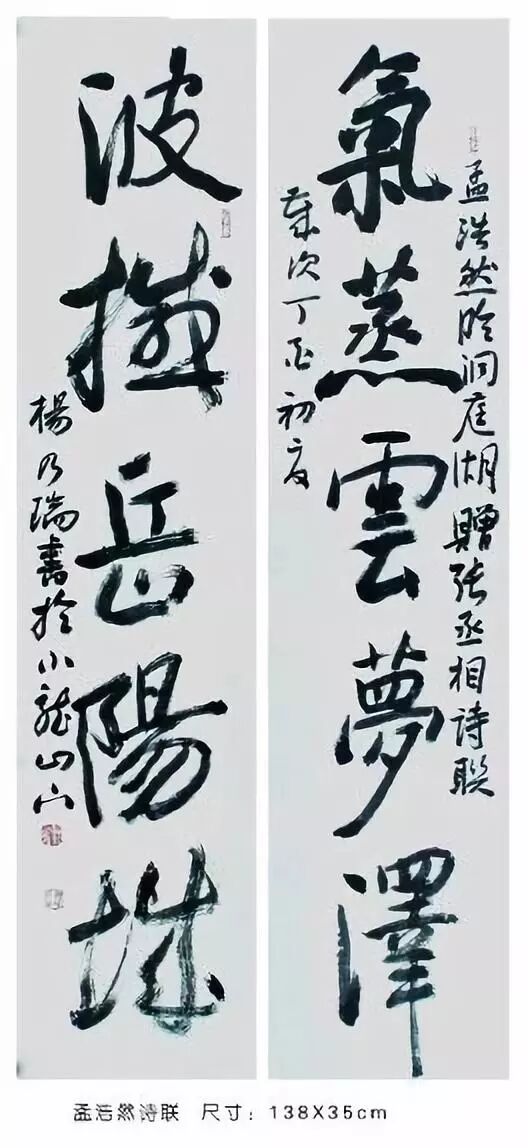 氣蒸雲夢澤
孟浩然吟洞庭湖贈张丞相诗联
歲次丁酉初夏
波撼岳陽城
楊乃瑞書於小龍山下
孟浩然诗联 尺寸：138X35cm